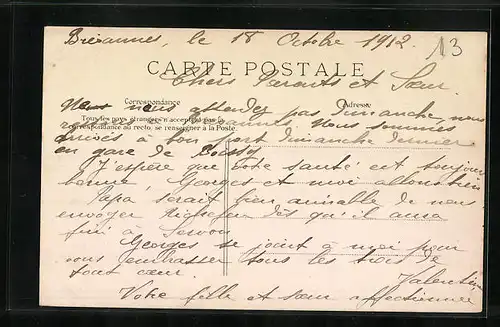 Brévannes, le 18 Octobre 1912.
13
CARTE POSTALE
Chers Parents et Sœur
Correspondance
Adresse
Nous nous attendez pas dimanche, nous
Tous les pays étrangers n'acceptent pas la
Correspondance au recto, se renseigner à la Poste
Nous sommes
arrivés à bon port dimanche dernier
en gare de Boissy
J'espère que votre santé est toujours
bonne, Georges et moi allons bien
Papa serait bien aimable de nous
envoyer dès qu'il aura
fini à Servon
Georges se joint à moi pour
vous embrasser tous les trois de
tout cœur.
Valentine
Votre fille et sœur affectionnée